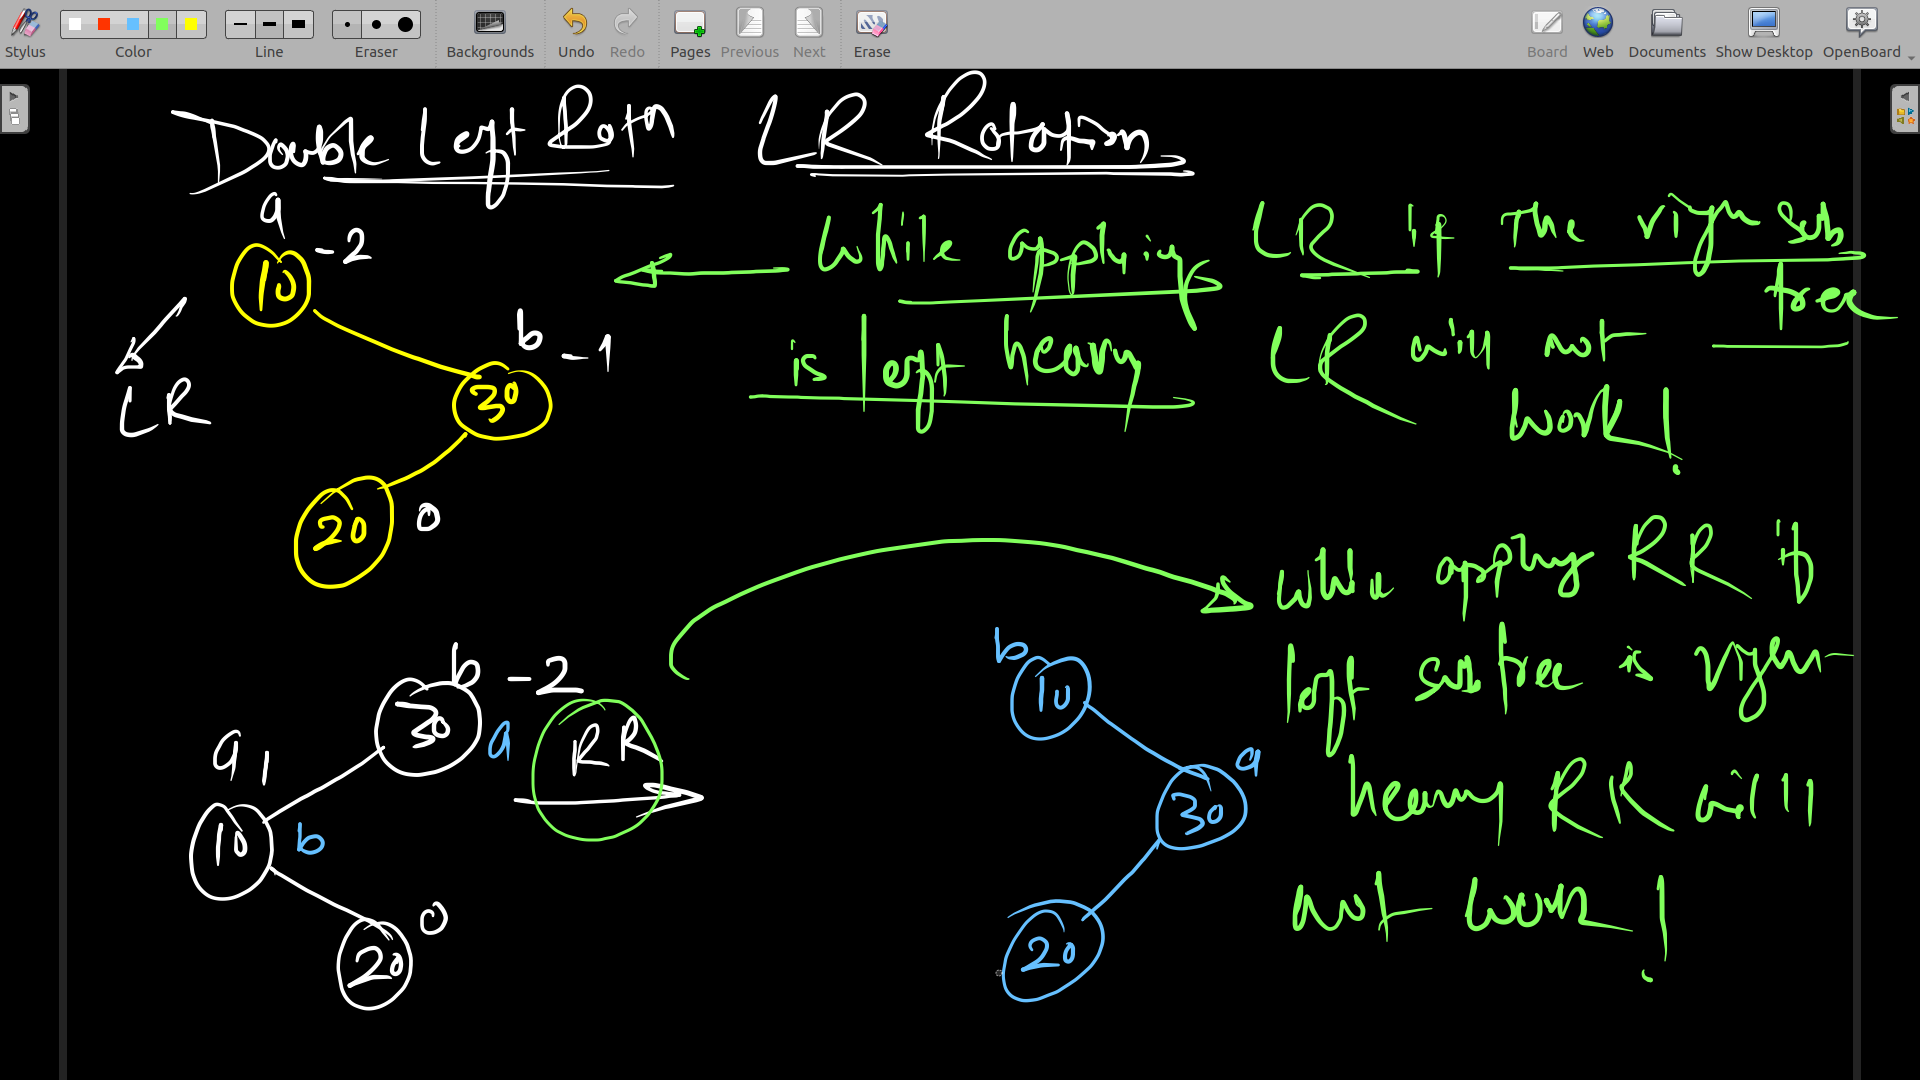 Stylus Color Line Eraser Backgrounds Undo Redo Pages Previous Next Erase Board Web Documents Show Desktop OpenBoard
Double Left Rotn LR Rotation
a
10 -2
b -1
30
20 0
LR
While applying LR if The right sub
tree
is left heavy LR will not
work!
b -2
30 a
a 1
10 b
20 0
RR
b
10
a
30
20
While applying RR if
left subtree is right
heavy RR will
not work!